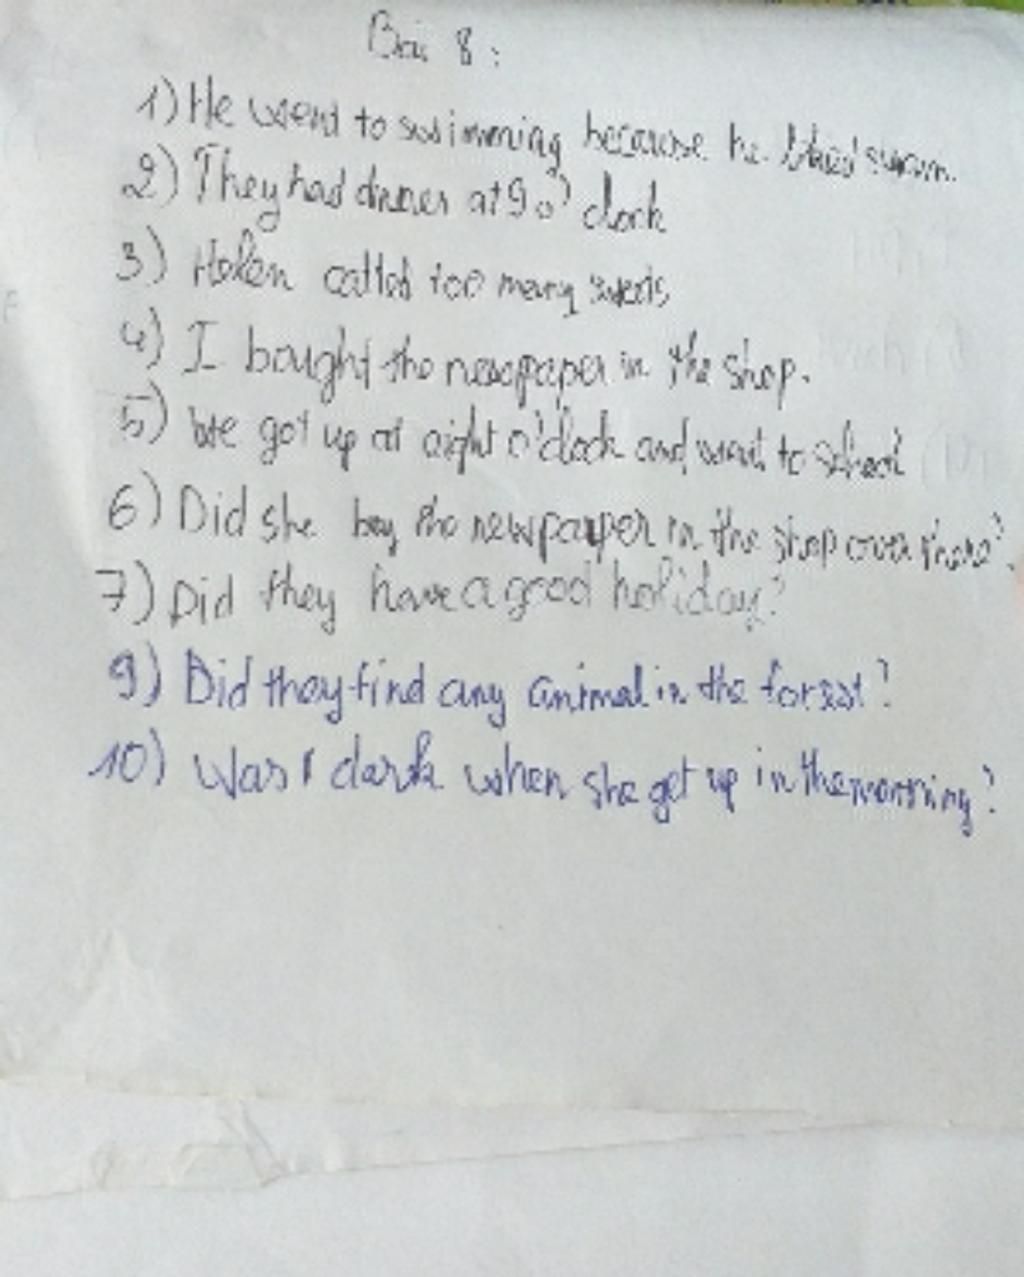 Bài 8:
1) He went to swimming because he liked swam.
2) They had dinner at 9 o' clock
3) Helen catted too many sweets
4) I bought the newspaper in the shop.
5) We got up at eight o'clock and went to school
6) Did she buy the newpaper in the shop over there?
7) Did they have a good holiday?
9) Did they find any animal in the forest?
10) Was I dark when she get up in the morning?